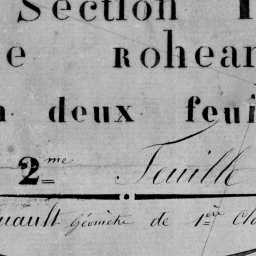 Section
e Rohear
deux feui
2me Feuille
uault Géomètre de 1ère Cla